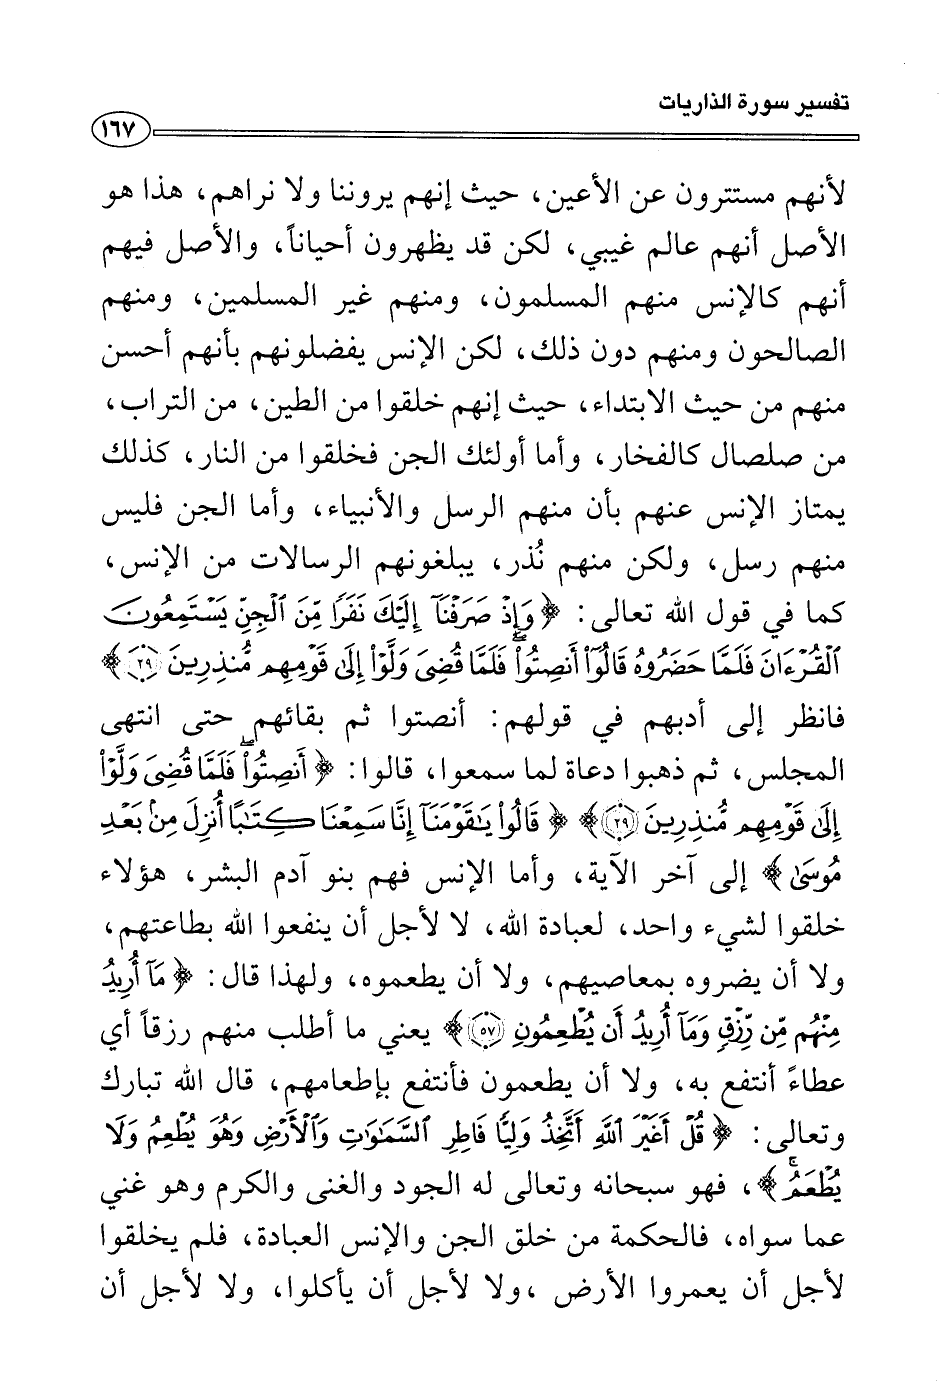 تفسير سورة الذاريات
١٦٧
لأنهم مستترون عن الأعين، حيث إنهم يروننا ولا نراهم، هذا هو
الأصل أنهم عالم غيبي، لكن قد يظهرون أحياناً، والأصل فيهم
أنهم كالإنس منهم المسلمون، ومنهم غير المسلمين، ومنهم
الصالحون ومنهم دون ذلك، لكن الإنس يفضلونهم بأنهم أحسن
منهم من حيث الابتداء، حيث إنهم خلقوا من الطين، من التراب،
من صلصال كالفخار، وأما أولئك الجن فخلقوا من النار، كذلك
يمتاز الإنس عنهم بأن منهم الرسل والأنبياء، وأما الجن فليس
منهم رسل، ولكن منهم نُذر، يبلغونهم الرسالات من الإنس،
كما في قول الله تعالى: ﴿وَإِذْ صَرَفْنَآ إِلَيْكَ نَفَرًا مِّنَ ٱلْجِنِّ يَسْتَمِعُونَ
ٱلْقُرْءَانَ فَلَمَّا حَضَرُوهُ قَالُوٓا۟ أَنصِتُوا۟ ۖ فَلَمَّا قُضِىَ وَلَّوْا۟ إِلَىٰ قَوْمِهِم مُّنذِرِينَ ٢٩﴾
فانظر إلى أدبهم في قولهم: أنصتوا ثم بقائهم حتى انتهى
المجلس، ثم ذهبوا دعاة لما سمعوا، قالوا: ﴿أَنصِتُوا۟ ۖ فَلَمَّا قُضِىَ وَلَّوْا۟
إِلَىٰ قَوْمِهِم مُّنذِرِينَ ٢٩﴾ ﴿قَالُوا۟ يَٰقَوْمَنَآ إِنَّا سَمِعْنَا كِتَٰبًا أُنزِلَ مِنۢ بَعْدِ
مُوسَىٰ﴾ إلى آخر الآية، وأما الإنس فهم بنو آدم البشر، هؤلاء
خلقوا لشيء واحد، لعبادة الله، لا لأجل أن ينفعوا الله بطاعتهم،
ولا أن يضروه بمعاصيهم، ولا أن يطعموه، ولهذا قال: ﴿مَآ أُرِيدُ
مِنْهُم مِّن رِّزْقٍ وَمَآ أُرِيدُ أَن يُطْعِمُونِ ٥٧﴾ يعني ما أطلب منهم رزقاً أي
عطاءً أنتفع به، ولا أن يطعمون فأنتفع بإطعامهم، قال الله تبارك
وتعالى: ﴿قُلْ أَغَيْرَ ٱللَّهِ أَتَّخِذُ وَلِيًّا فَاطِرِ ٱلسَّمَٰوَٰتِ وَٱلْأَرْضِ وَهُوَ يُطْعِمُ وَلَا
يُطْعَمُ ۗ﴾، فهو سبحانه وتعالى له الجود والغنى والكرم وهو غني
عما سواه، فالحكمة من خلق الجن والإنس العبادة، فلم يخلقوا
لأجل أن يعمروا الأرض ،ولا لأجل أن يأكلوا، ولا لأجل أن